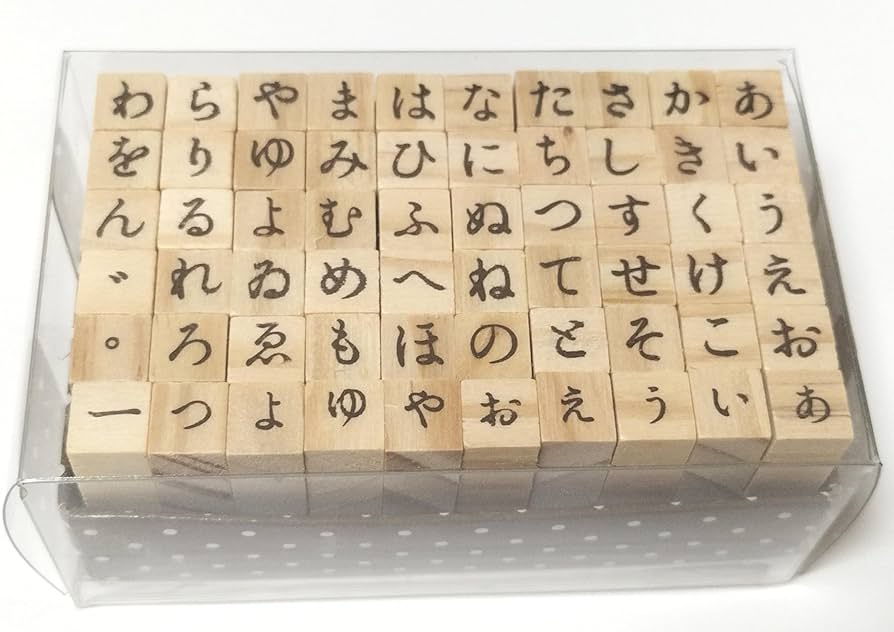 あいうえおぁ
かきくけこぃ
さしすせそぅ
たちつてとぇ
なにぬねのぉ
はひふへほゃ
まみむめもゅ
やゆよゐゑょ
らりるれろっ
わをん゛゜ー